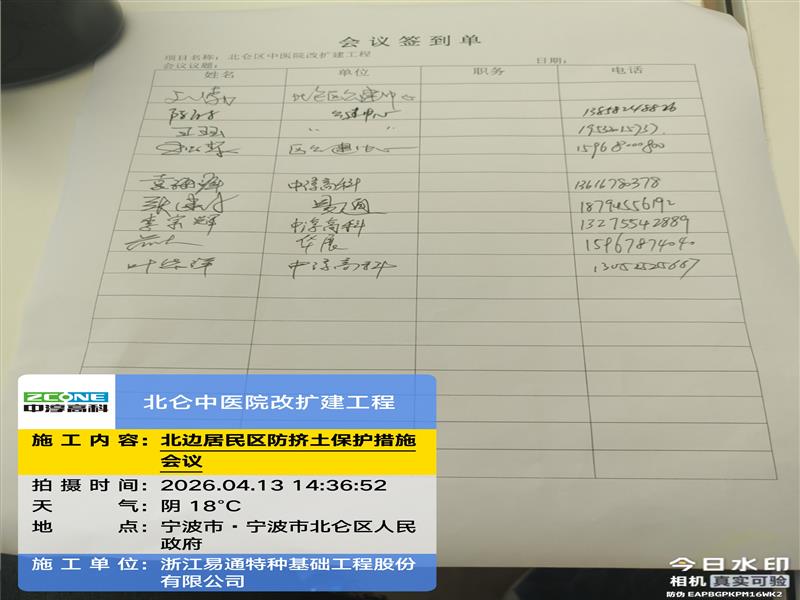 会议签到单
项目名称：北仑区中医院改扩建工程 日期：
会议议题：
姓名 单位 职务 电话
北仑区公建中心
公建中心 13858248826
〃 〃
区公建中心 15968000800
中淳高科 13616780378
易通 18794556192
李宗辉 中淳高科 13275542889
华展 15967874040
中淳高科
ZCONE
中淳高科
北仑中医院改扩建工程
施工内容：北边居民区防挤土保护措施
会议
拍摄时间：2026.04.13 14:36:52
天气：阴 18°C
地点：宁波市·宁波市北仑区人民
政府
施工单位：浙江易通特种基础工程股份
有限公司
今日水印
相机 真实可验
防伪 EAPBGPKPM16WK2